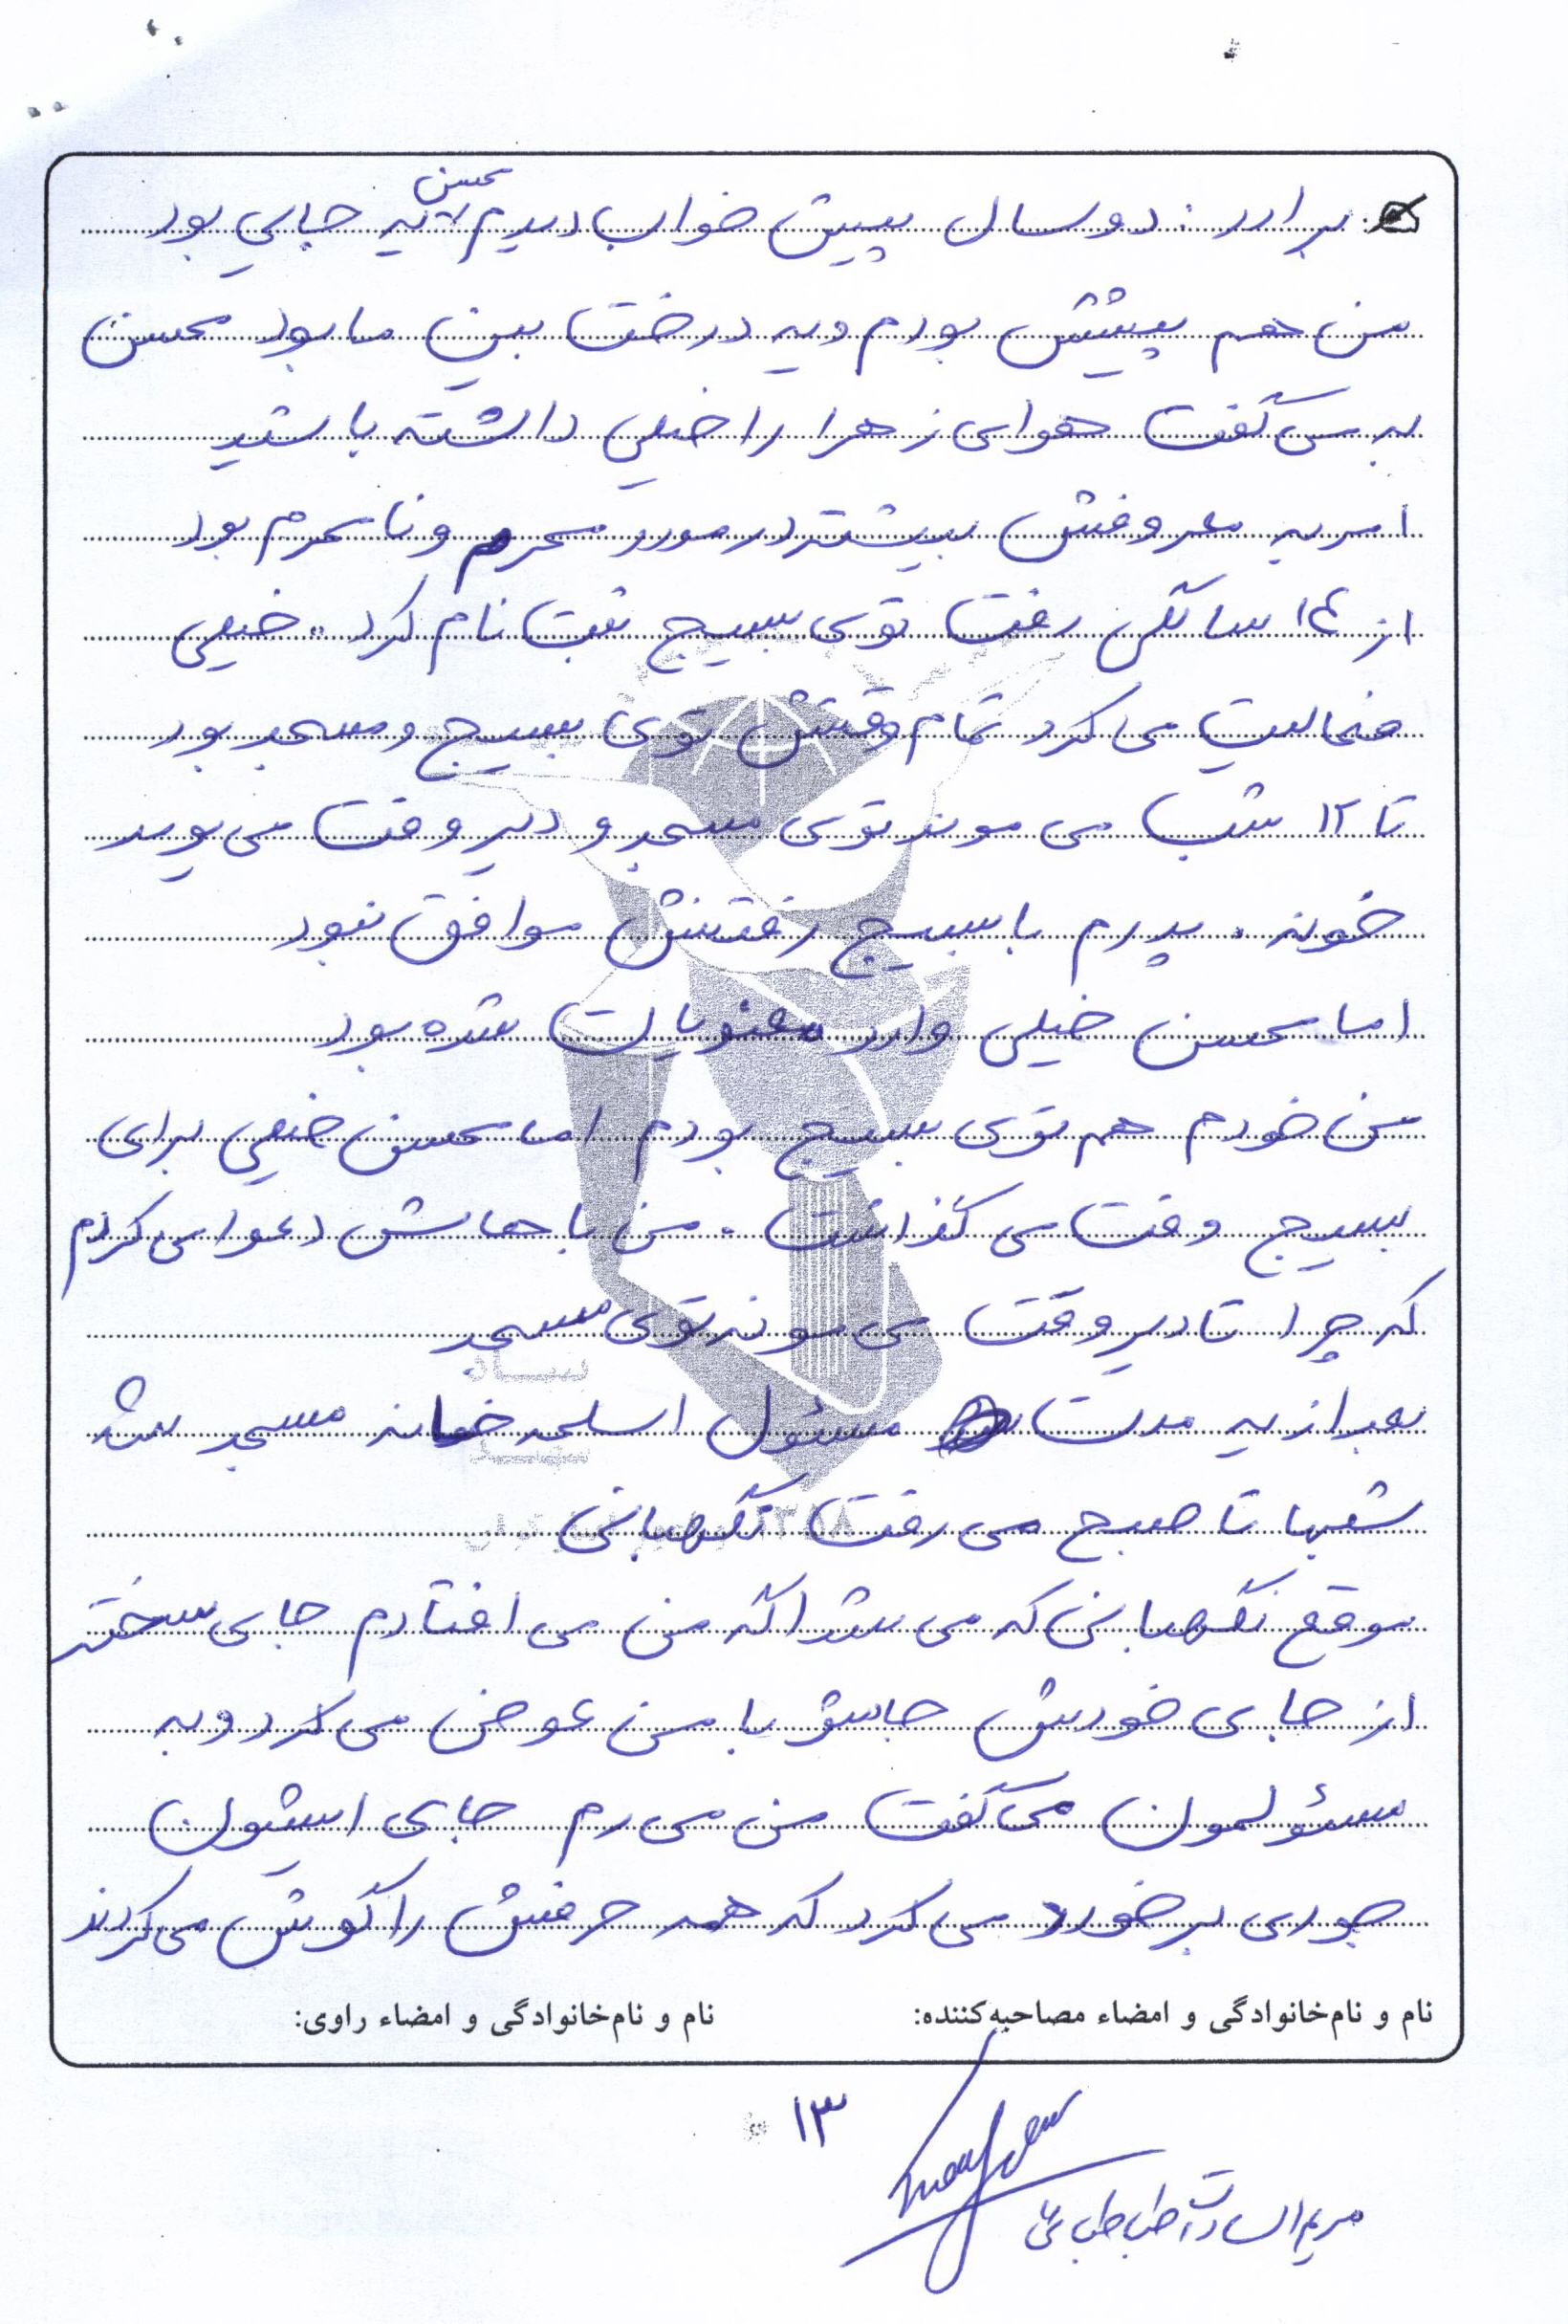 برادر: دو سال پیش خواب دیدم محسن یه جایی بود
من هم پیشش بودم و یه درخت بین ما بود محسن
به من گفت هوای زهرا را خیلی داشته باشید
امر به معروفش بیشتر در مورد محرم و نامحرم بود
از ۱۴ سالگی رفت توی بسیج ثبت نام کرد. خیلی
فعالیت می کرد تمام وقتش توی بسیج و مسجد بود
تا ۱۲ شب می موند توی مسجد و دیر وقت می یومد
خونه. پدرم با بسیج رفتنش موافق نبود
اما محسن خیلی وارد معنویات شده بود
من خودم هم توی بسیج بودم اما محسن خیلی برای
بسیج وقت می گذاشت. من باهاش دعوا می کردم
که چرا تا دیر وقت می مونه توی مسجد
بعد از یه مدت مسئول اسلحه خانه مسجد شد
شبها تا صبح می رفت نگهبانی
موقع نگهبانی که می شد اگه من می افتادم جای سخت
از جای خودش جاشو با من عوض می کرد و به
مسئولمون می گفت من می رم جای ایشون
جوری برخورد می کرد که همه حرفش را گوش می کردند
نام و نام‌خانوادگی و امضاء مصاحبه‌کننده:
نام و نام‌خانوادگی و امضاء راوی:
۱۳
مریم السادات طباطبائی